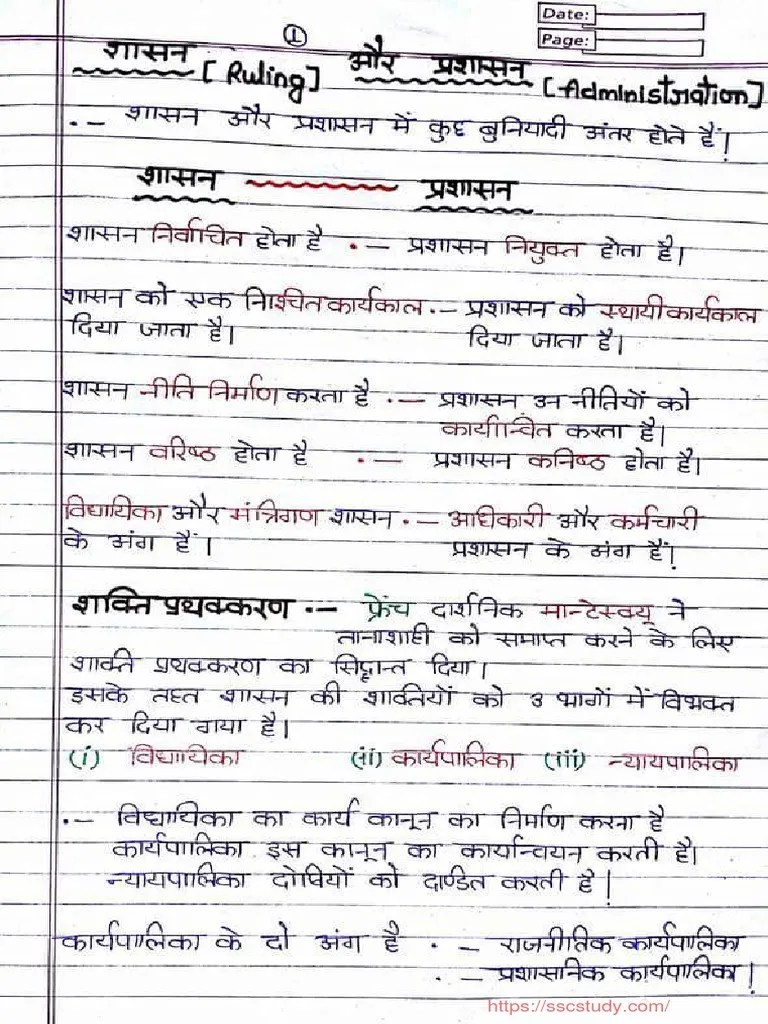 Date:
Page:
①
शासन [Ruling] और प्रशासन [Administration]
.– शासन और प्रशासन में कुछ बुनियादी अंतर होते हैं।
शासन प्रशासन
शासन निर्वाचित होता है .– प्रशासन नियुक्त होता है।
शासन को एक निश्चित कार्यकाल .– प्रशासन को स्थायी कार्यकाल
दिया जाता है। दिया जाता है।
शासन नीति निर्माण करता है .– प्रशासन उन नीतियों को
कार्यान्वित करता है।
शासन वरिष्ठ होता है .– प्रशासन कनिष्ठ होता है।
विधायिका और मंत्रिगण शासन .– अधिकारी और कर्मचारी
के अंग हैं। प्रशासन के अंग हैं।
शक्ति प्रथक्करण .– फ्रेंच दार्शनिक मान्टेस्क्यू ने
तानाशाही को समाप्त करने के लिए
शक्ति प्रथक्करण का सिद्धान्त दिया।
इसके तहत शासन की शक्तियों को 3 भागों में विभक्त
कर दिया गया है।
(i) विधायिका (ii) कार्यपालिका (iii) न्यायपालिका
.– विधायिका का कार्य कानून का निर्माण करना है
कार्यपालिका इस कानून का कार्यान्वयन करती है।
न्यायपालिका दोषियों को दण्डित करती है।
कार्यपालिका के दो अंग है .– राजनीतिक कार्यपालिका
.– प्रशासनिक कार्यपालिका।
https://sscstudy.com/